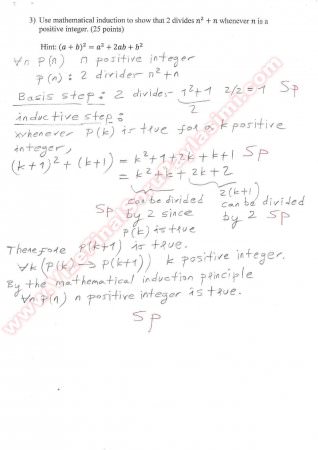 3) Use mathematical induction to show that 2 divides n² + n whenever n is a
positive integer. (25 points)
Hint: (a + b)² = a² + 2ab + b²
∀n P(n) n positive integer
P(n) : 2 divider n²+n
Basis step: 2 divides 1²+1 2/2=1 5p
2
inductive step:
whenever P(k) is true for a k positive
integer,
(k+1)² + (k+1) = k²+1+2k+k+1 5p
= k²+k+2k+2
2(k+1)
5p can be divided can be divided
by 2 since by 2 5p
P(k) is true
Therefore P(k+1) is true.
∀k (P(k) → P(k+1)) k positive integer.
By the mathematical induction principle
∀n P(n) n positive integer is true.
5p